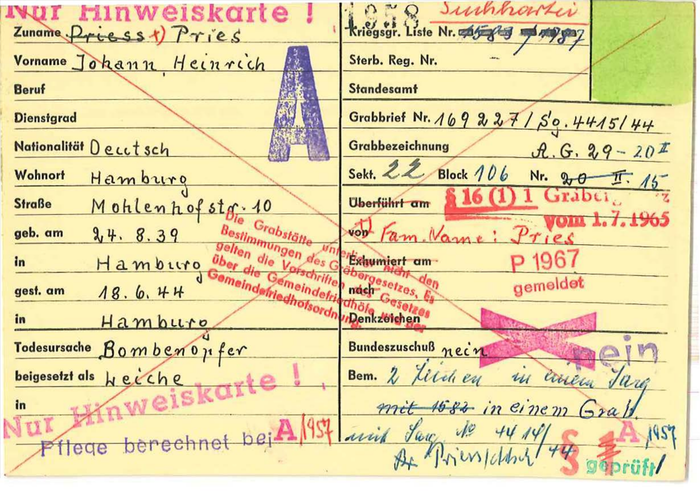 Nur Hinweiskarte !
Zuname Priess x) Pries
Vorname Johann, Heinrich
Beruf
Dienstgrad
Nationalität Deutsch
Wohnort Hamburg
Straße Mohlenhofstr. 10
geb. am 24. 8. 39
in Hamburg
gest. am 18. 6. 44
in Hamburg
Todesursache Bombenopfer
beigesetzt als Leiche
in
Nur Hinweiskarte !
Pflege berechnet bei A/1957
A
Die Grabstätte unterliegt nicht den
Bestimmungen des Gräbergesetzes. Es
gelten die Vorschriften des Gesetzes
über die Gemeindefriedhöfe und der
Gemeindefriedhofsordnung.
1958 Suchkartei
Kriegsgr. Liste Nr. 1583 / 1987
Sterb. Reg. Nr.
Standesamt
Grabbrief Nr. 169 227 / Sg. 4415/44
Grabbezeichnung A. G. 29 - 20 II
Sekt. 22 Block 106 Nr. 20 II. 15
Überführt am § 16 (1) 1 Gräberg
vom 1.7.1965
von x) Fam. Name: Pries
Exhumiert am P 1967
nach gemeldet
Denkzeichen
Bundeszuschuß nein nein
Bem. 2 Leichen in einem Sarg
mit 1582 in einem Grab.
mit Sarg No 4414/
44
A 1957
§ geprüft